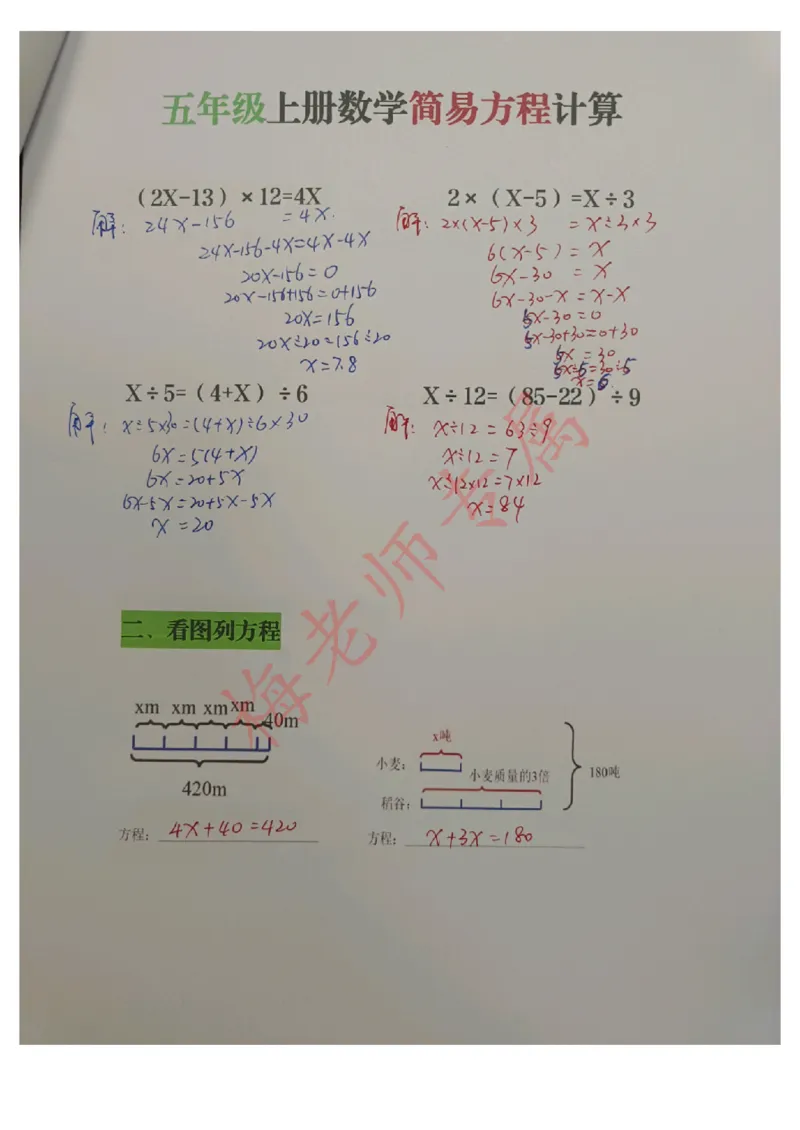 五年级上册数学简易方程计算
(2X-13)×12=4X
解: 24X-156 =4X.
24X-156-4X=4X-4X
20X-156=0
20X-156+156=0+156
20X=156
20X÷20=156÷20
X=7.8
2×(X-5)=X÷3
解: 2×(X-5)×3 =X÷3×3
6(X-5)=X
6X-30 =X
6X-30-X=X-X
5X-30=0
5X-30+30=0+30
5X=30
5X÷5=30÷5
X=6.
X÷5=(4+X)÷6
解: X÷5×30=(4+X)÷6×30
6X=5(4+X)
6X=20+5X
6X-5X=20+5X-5X
X=20
X÷12=(85-22)÷9
解: X÷12=63÷9
X÷12=7
X÷12×12=7×12
X=84
梅老师专属
二、看图列方程
xm xm xm xm 40m
420m
方程: 4X+40=420
x吨
小麦:
小麦质量的3倍
稻谷:
180吨
方程: X+3X=180